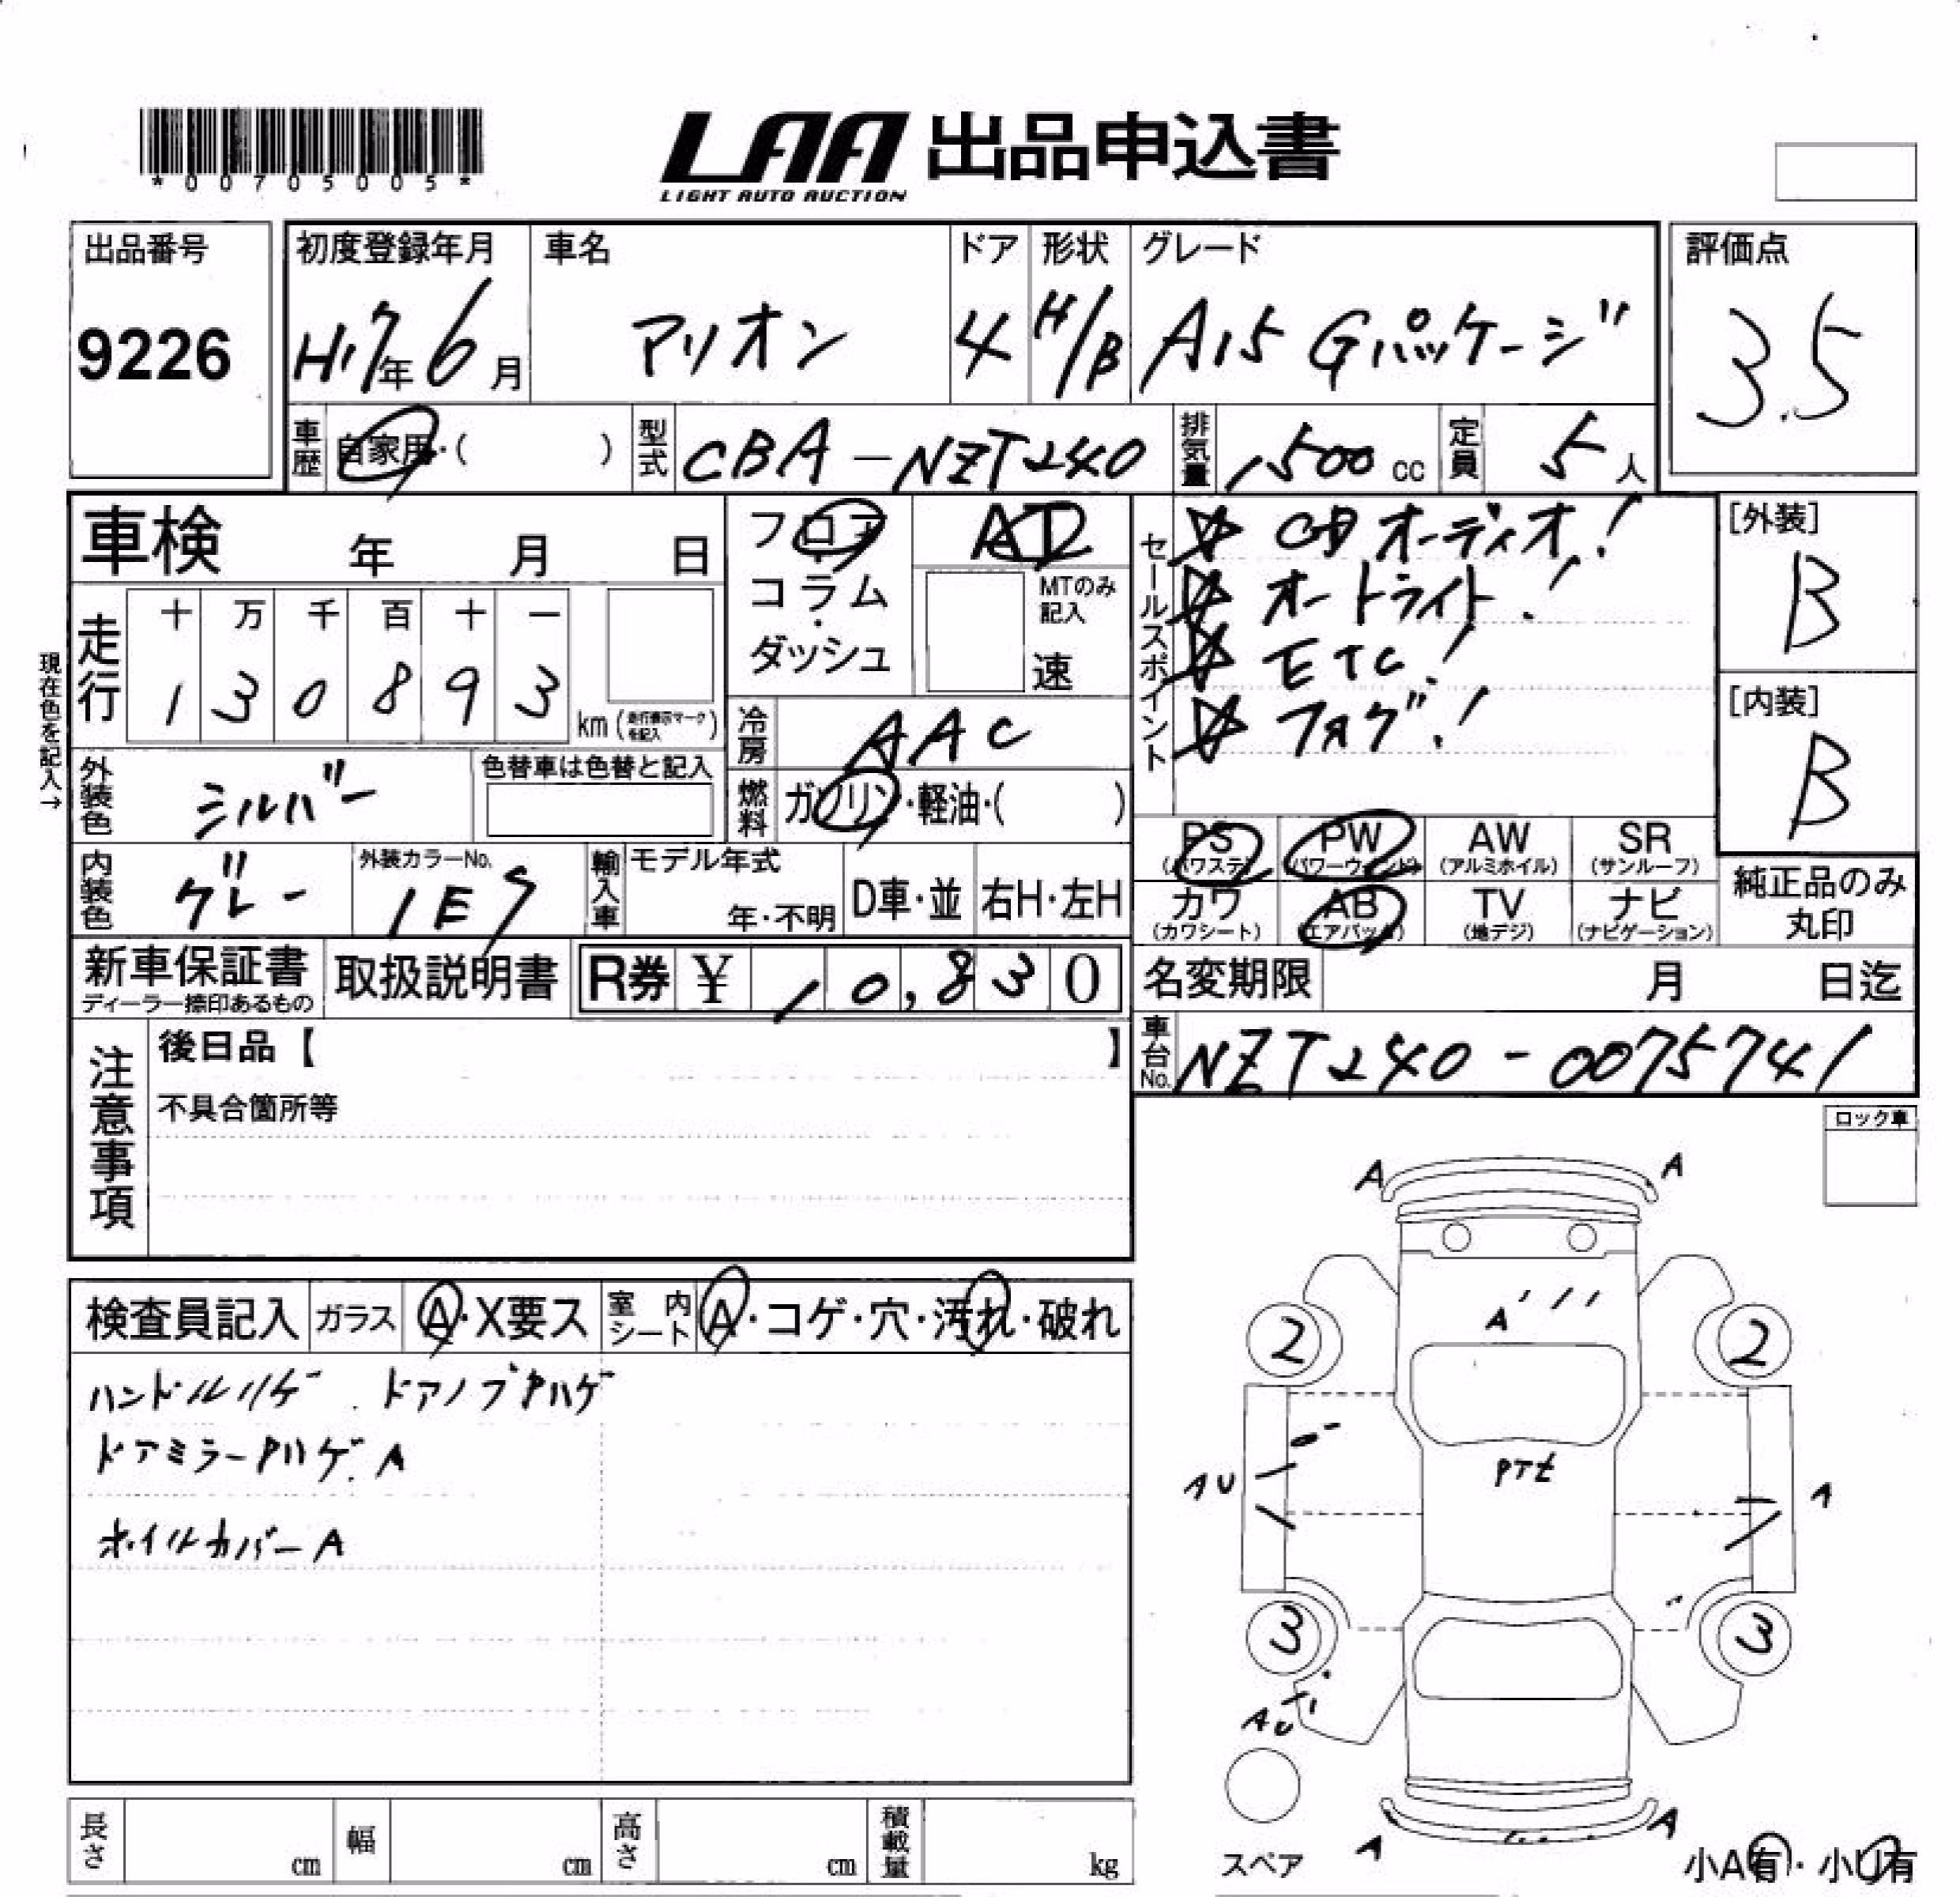 *00705005*
LAA 出品申込書
LIGHT AUTO AUCTION
出品番号
9226
初度登録年月
H17年6月
車名
アリオン
ドア
4
形状
H/B
グレード
A15 Gパッケージ
評価点
3.5
車歴
自家用・( )
型式
CBA-NZT240
排気量
1,500 cc
定員
5人
車検 年 月 日
フロア・コラム・ダッシュ
AT
MTのみ記入
速
セールスポイント
☆ CDオーディオ!
☆ オートライト!
☆ ETC!
☆ フォグ!
[外装]
B
[内装]
B
現在色を記入→
走行
十 万 千 百 十 一
1 3 0 8 9 3
km (走行表示マークを記入)
冷房
AAC
外装色
シルバー
色替車は色替と記入
燃料
ガソリン・軽油・( )
内装色
グレー
外装カラーNo.
1E7
輸入車
モデル年式
年・不明
D車・並
右H・左H
PS (パワステ)
PW (パワーウィンド)
AW (アルミホイル)
SR (サンルーフ)
カワ (カワシート)
AB (エアバッグ)
TV (地デジ)
ナビ (ナビゲーション)
純正品のみ丸印
新車保証書
ディーラー捺印あるもの
取扱説明書
R券 ¥ 10,830
名変期限 月 日迄
車台No.
NZT240-0075741
注意事項
後日品【 】
不具合箇所等
ロック車
検査員記入
ガラス
A・X要ス
室内シート
A・コゲ・穴・汚れ・破れ
ハンドルハゲ. ドアノブPハゲ
ドアミラーPハゲ. A
ホイルカバーA
A A
A
2 2
AU
PTセ
A
3 3
AU
スペア
A A
小A有・小U有
長さ cm
幅 cm
高さ cm
積載量 kg